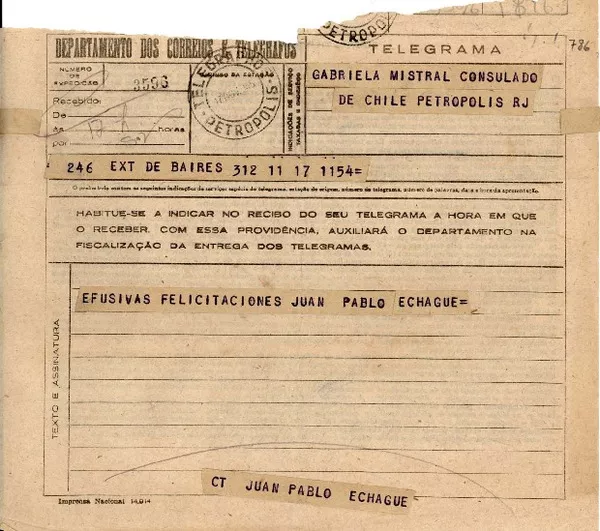 PETROPO
786
DEPARTAMENTO DOS CORREIOS E TELEGRAFOS
TELEGRAMA
NÚMERO
DE
EXPEDIÇÃO
3596
CARIMBO DA ESTAÇÃO
TELEGRA
PETROPOLIS
INDICAÇÕES DE SERVIÇO
TAXADAS E ENDERÊÇO
GABRIELA MISTRAL CONSULADO
DE CHILE PETROPOLIS RJ
Recebido:
De
às 17 horas
por
246 EXT DE BAIRES 312 11 17 1154=
O preâmbulo contém as seguintes indicações de serviço: espécie do telegrama, estação de origem, número do telegrama, número de palavras, data e hora da apresentação.
HABITUE-SE A INDICAR NO RECIBO DO SEU TELEGRAMA A HORA EM QUE
O RECEBER. COM ESSA PROVIDÊNCIA, AUXILIARÁ O DEPARTAMENTO NA
FISCALIZAÇÃO DA ENTREGA DOS TELEGRAMAS.
TEXTO E ASSINATURA
EFUSIVAS FELICITACIONES JUAN PABLO ECHAGUE=
CT JUAN PABLO ECHAGUE=
Imprensa Nacional 14.014